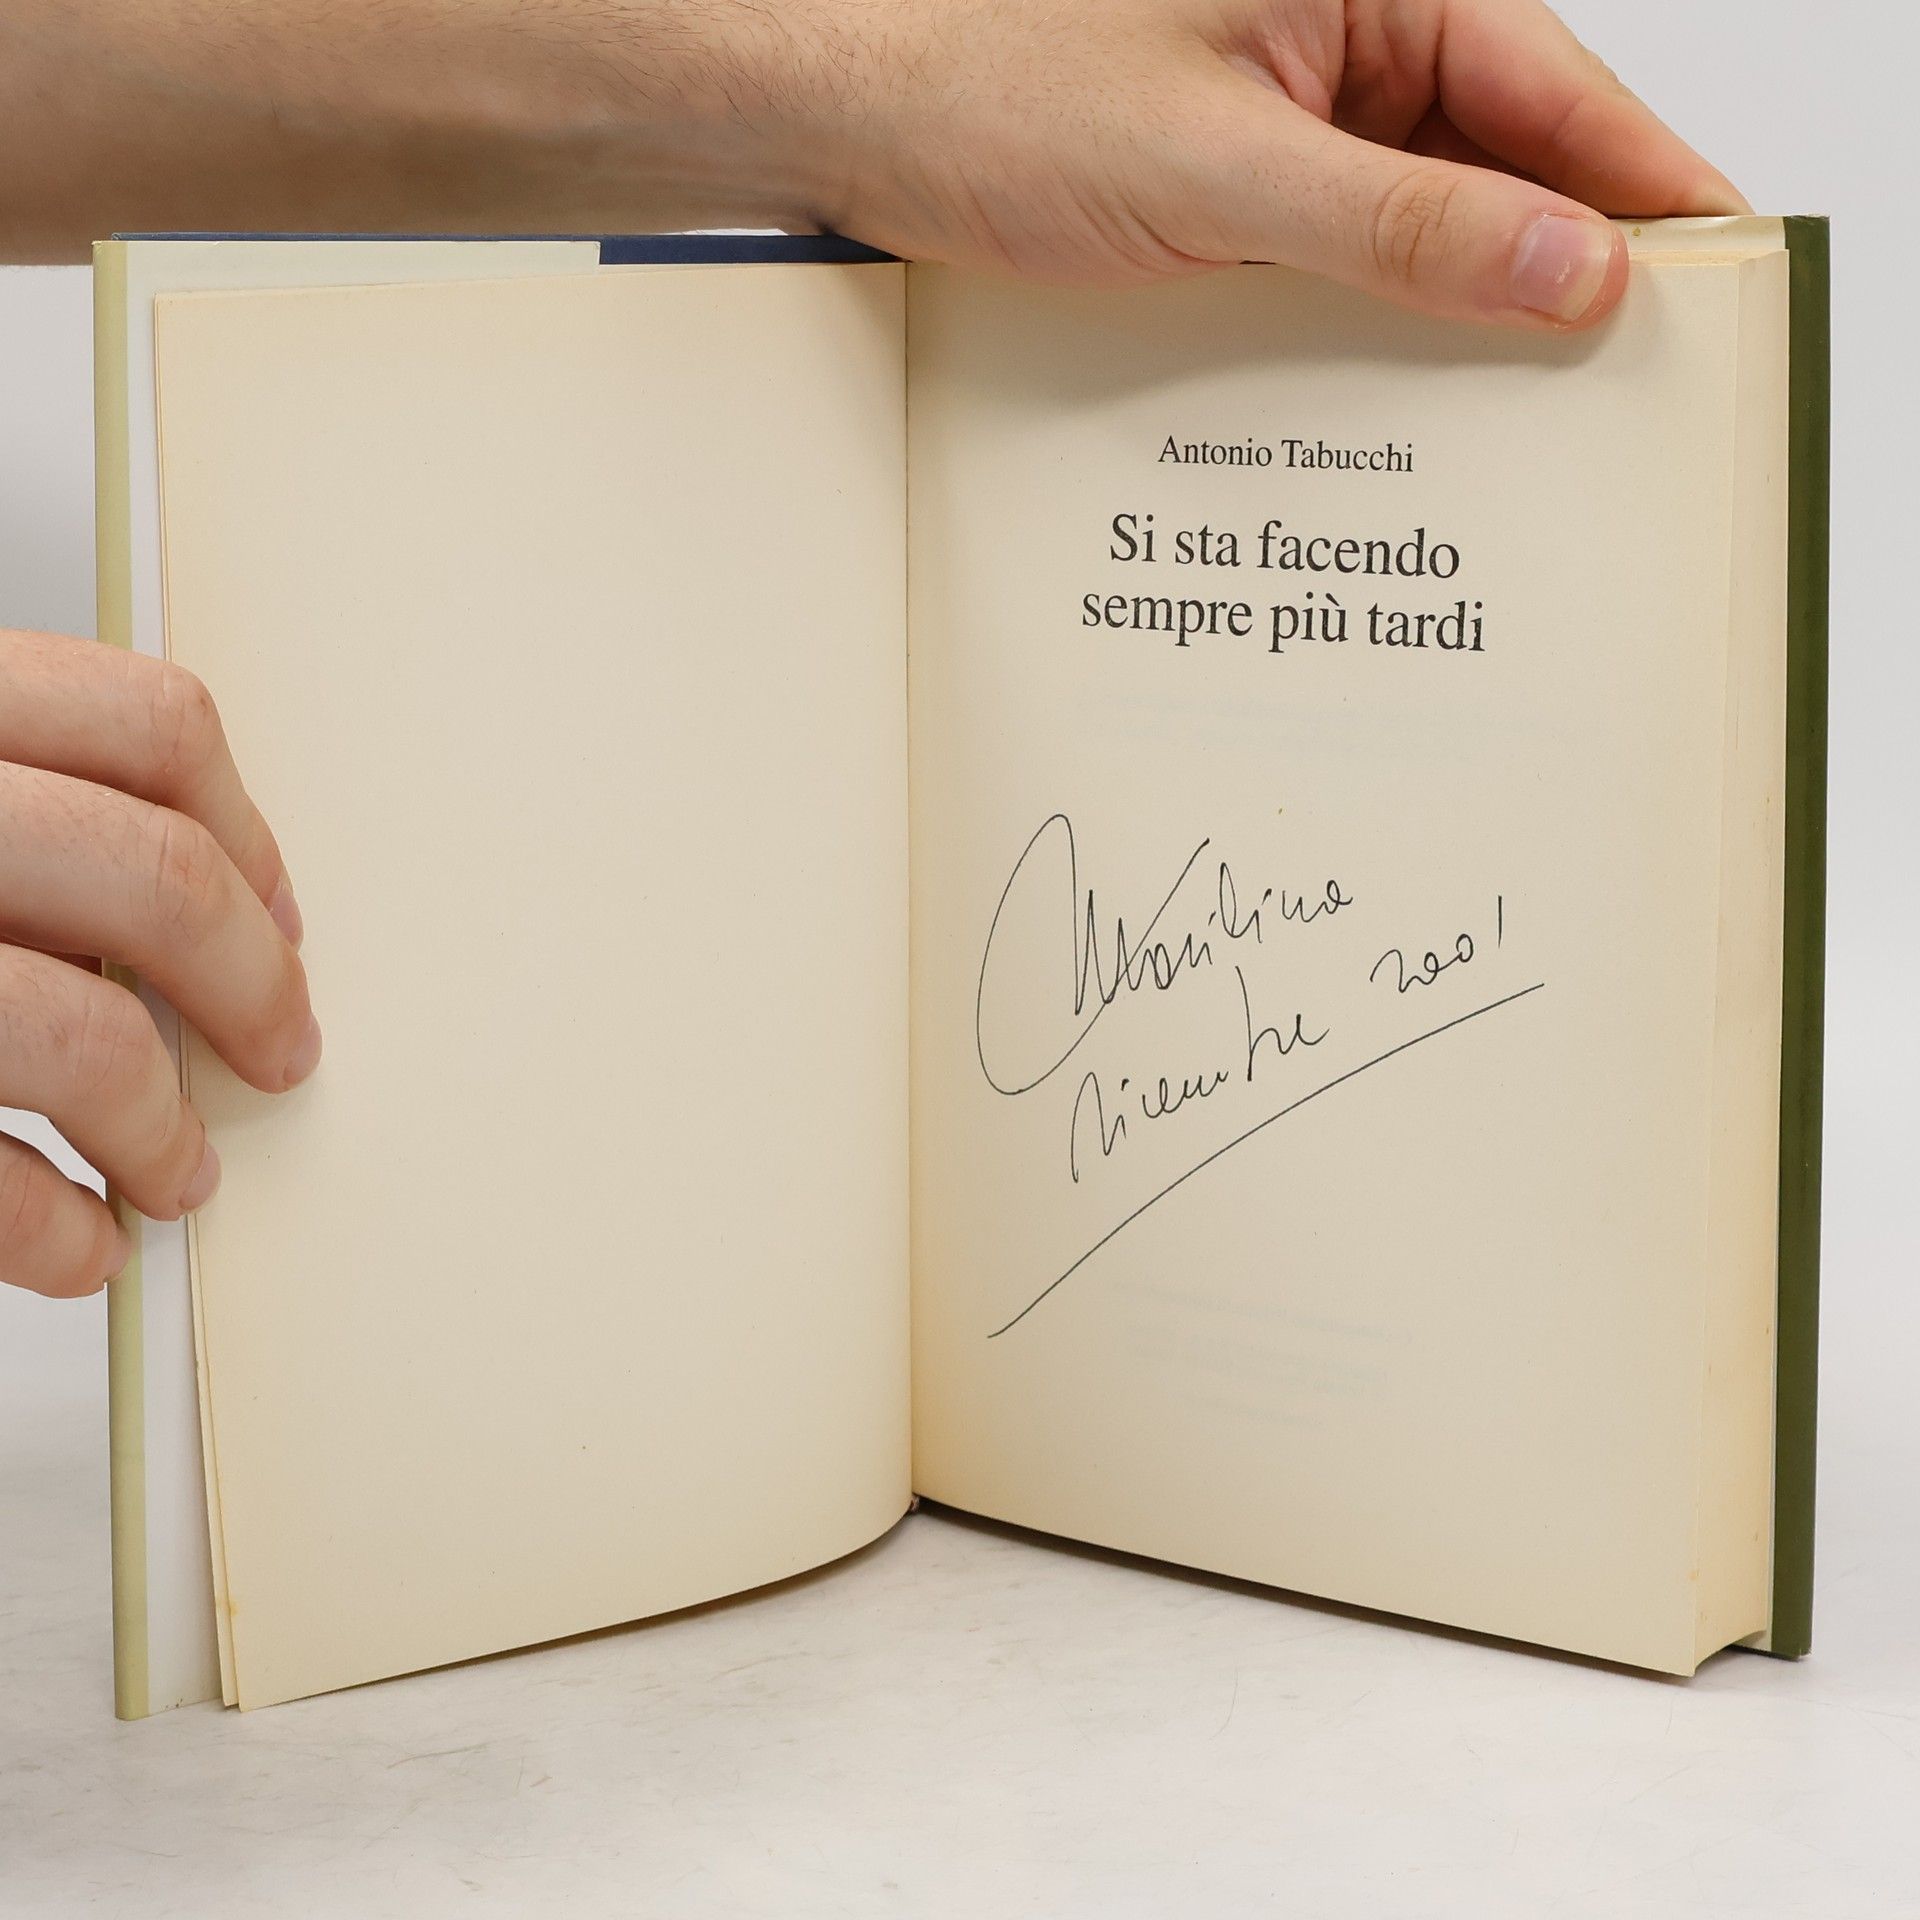 Antonio Tabucchi
Si sta facendo
sempre più tardi
Marilina
dicembre 2001